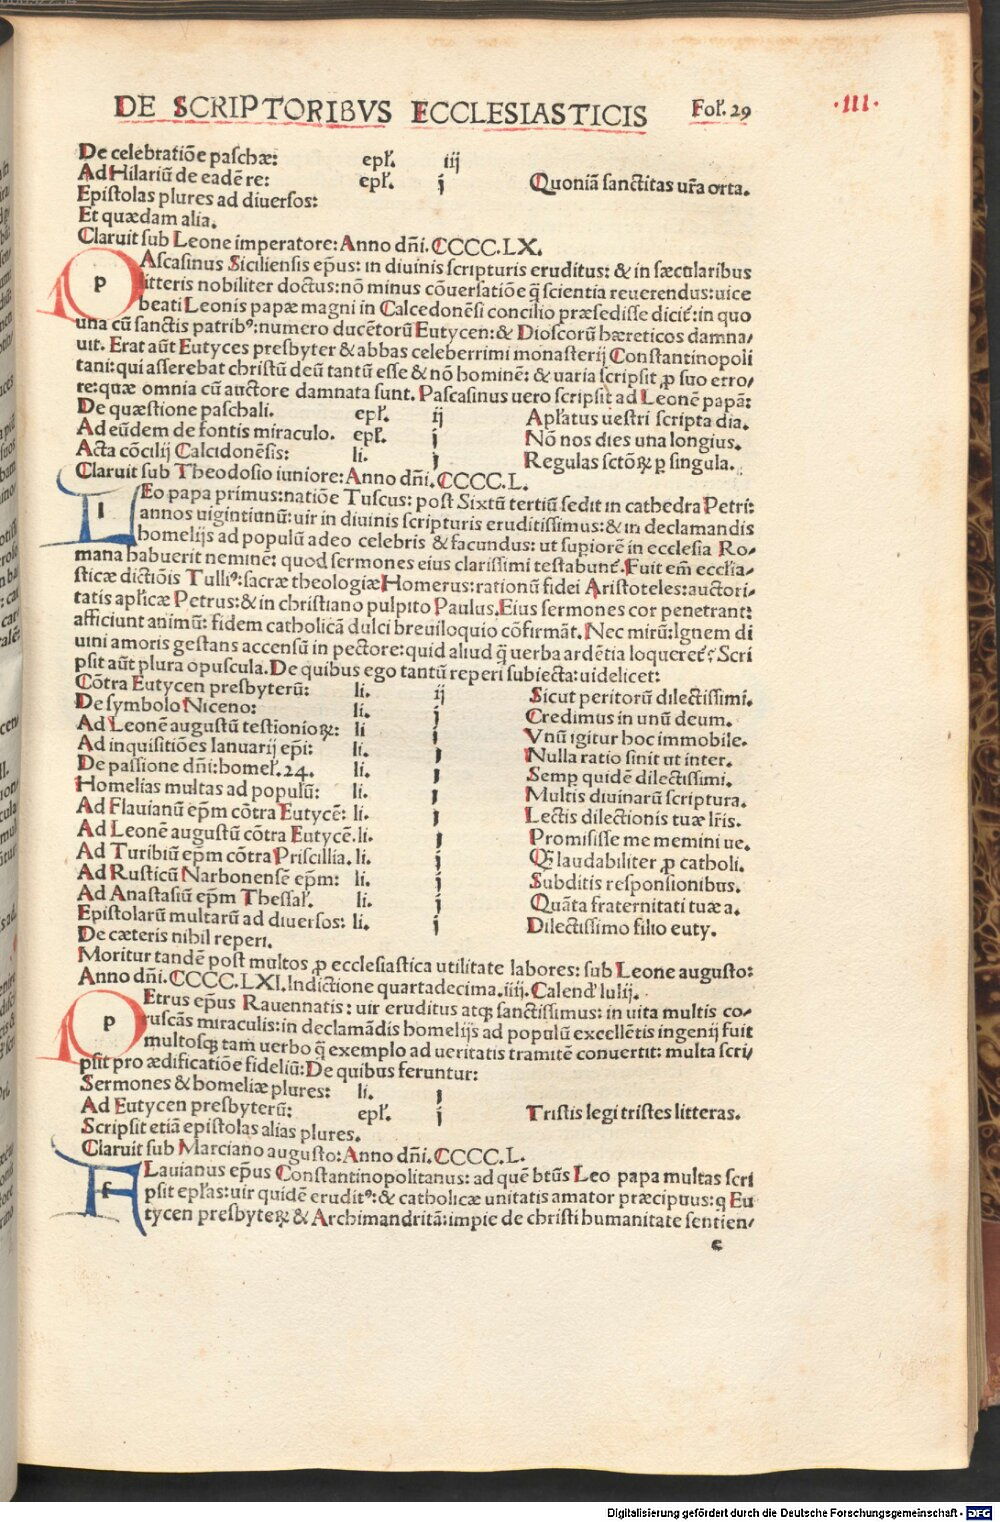 DE SCRIPTORIBVS ECCLESIASTICIS Fol̃. 29 ·III·
De celebratiõe paschæ: epl̃. iij
Ad Hilariũ de eadẽ re: epl̃. j Quoniã sanctitas ur̃a orta.
Epistolas plures ad diuersos:
Et quædam alia.
Claruit sub Leone imperatore: Anno dñi. CCCC.LX.
PAscasinus Siciliensis ep̃us: in diuinis scripturis eruditus: & in sæcularibus
litteris nobiliter doctus: nõ minus cõuersatiõe q̃ scientia reuerendus: uice
beati Leonis papæ magni in Calcedonẽsi concilio præsedisse dicit̃: in quo
una cũ sanctis patribꝰ: numero ducẽtorũ Eutycen: & Dioscorũ hæreticos damna/
uit. Erat aũt Eutyces presbyter & abbas celeberrimi monasterij Constantinopoli
tani: qui asserebat christũ deũ tantũ esse & nõ hominẽ: & uaria scripsit ꝓ suo erro/
re: quæ omnia cũ auctore damnata sunt. Pascasinus uero scripsit ad Leonẽ papã:
De quæstione paschali. epl̃. ij Apl̃atus uestri scripta dia.
Ad eũdem de fontis miraculo. epl̃. j Nõ nos dies una longius.
Acta cõcilij Calcidonẽsis: li. j Regulas sctõꝝ ꝑ singula.
Claruit sub Theodosio iuniore: Anno dñi. CCCC.L.
LEo papa primus: natiõe Tuscus: post Sixtũ tertiũ sedit in cathedra Petri:
annos uigintiunũ: uir in diuinis scripturis eruditissimus: & in declamandis
homelijs ad populũ adeo celebris & facundus: ut sup̃iorẽ in ecclesia Ro/
mana habuerit neminẽ: quod sermones eius clarissimi testabunt̃. Fuit em̃ eccl̃ia/
sticæ dictiõis Tulliꝰ: sacræ theologiæ Homerus: rationũ fidei Aristoteles: auctori/
tatis apl̃icæ Petrus: & in christiano pulpito Paulus. Eius sermones cor penetrant:
afficiunt animũ: fidem catholicã dulci breuiloquio cõfirmãt. Nec mirũ: Ignem di
uini amoris gestans accensũ in pectore: quid aliud q̃ uerba ardẽtia loqueret̃? Scri
psit aũt plura opuscula. De quibus ego tantũ reperi subiecta: uidelicet:
Cõtra Eutycen presbyterũ: li. ij Sicut peritorũ dilectissimi.
De symbolo Niceno: li. j Credimus in unũ deum.
Ad Leonẽ augustũ testionioꝝ: li j Vnũ igitur hoc immobile.
Ad inquisitiões Ianuarij ep̃i: li. j Nulla ratio sinit ut inter.
De passione dñi: homel̃. 24. li. j Semp quidẽ dilectissimi.
Homelias multas ad populũ: li. j Multis diuinarũ scriptura.
Ad Flauianũ ep̃m cõtra Eutycẽ: li. j Lectis dilectionis tuæ lr̃is.
Ad Leonẽ augustũ cõtra Eutycẽ. li. j Promisisse me memini ue.
Ad Turibiũ ep̃m cõtra Priscillia. li. j Q̃ laudabiliter ꝓ catholi.
Ad Rusticũ Narbonensẽ ep̃m: li. j Subditis responsionibus.
Ad Anastasiũ ep̃m Thessal̃. li. j Quãta fraternitati tuæ a.
Epistolarũ multarũ ad diuersos: li. j Dilectissimo filio euty.
De cæteris nihil reperi.
Moritur tandẽ post multos ꝓ ecclesiastica utilitate labores: sub Leone augusto:
Anno dñi. CCCC.LXI. Indictione quartadecima. iiij. Calend̃ Iulij.
PEtrus ep̃us Rauennatis: uir eruditus atqꝫ sanctissimus: in uita multis co/
ruscãs miraculis: in declamãdis homelijs ad populũ excellẽtis ingenij fuit
multosqꝫ tam uerbo q̃ exemplo ad ueritatis tramitẽ conuertit: multa scri/
psit pro ædificatiõe fideliũ: De quibus feruntur:
Sermones & homeliæ plures: li. j
Ad Eutycen presbyterũ: epl̃. j Tristis legi tristes litteras.
Scripsit etiã epistolas alias plures.
Claruit sub Marciano augusto: Anno dñi. CCCC.L.
FLauianus ep̃us Constantinopolitanus: ad quẽ bt̃us Leo papa multas scri
psit epl̃as: uir quidẽ eruditꝰ: & catholicæ unitatis amator præcipuus: q Eu
tycen presbyteꝝ & Archimandritã: impie de christi humanitate sentien/
e
Digitalisierung gefördert durch die Deutsche Forschungsgemeinschaft - DFG